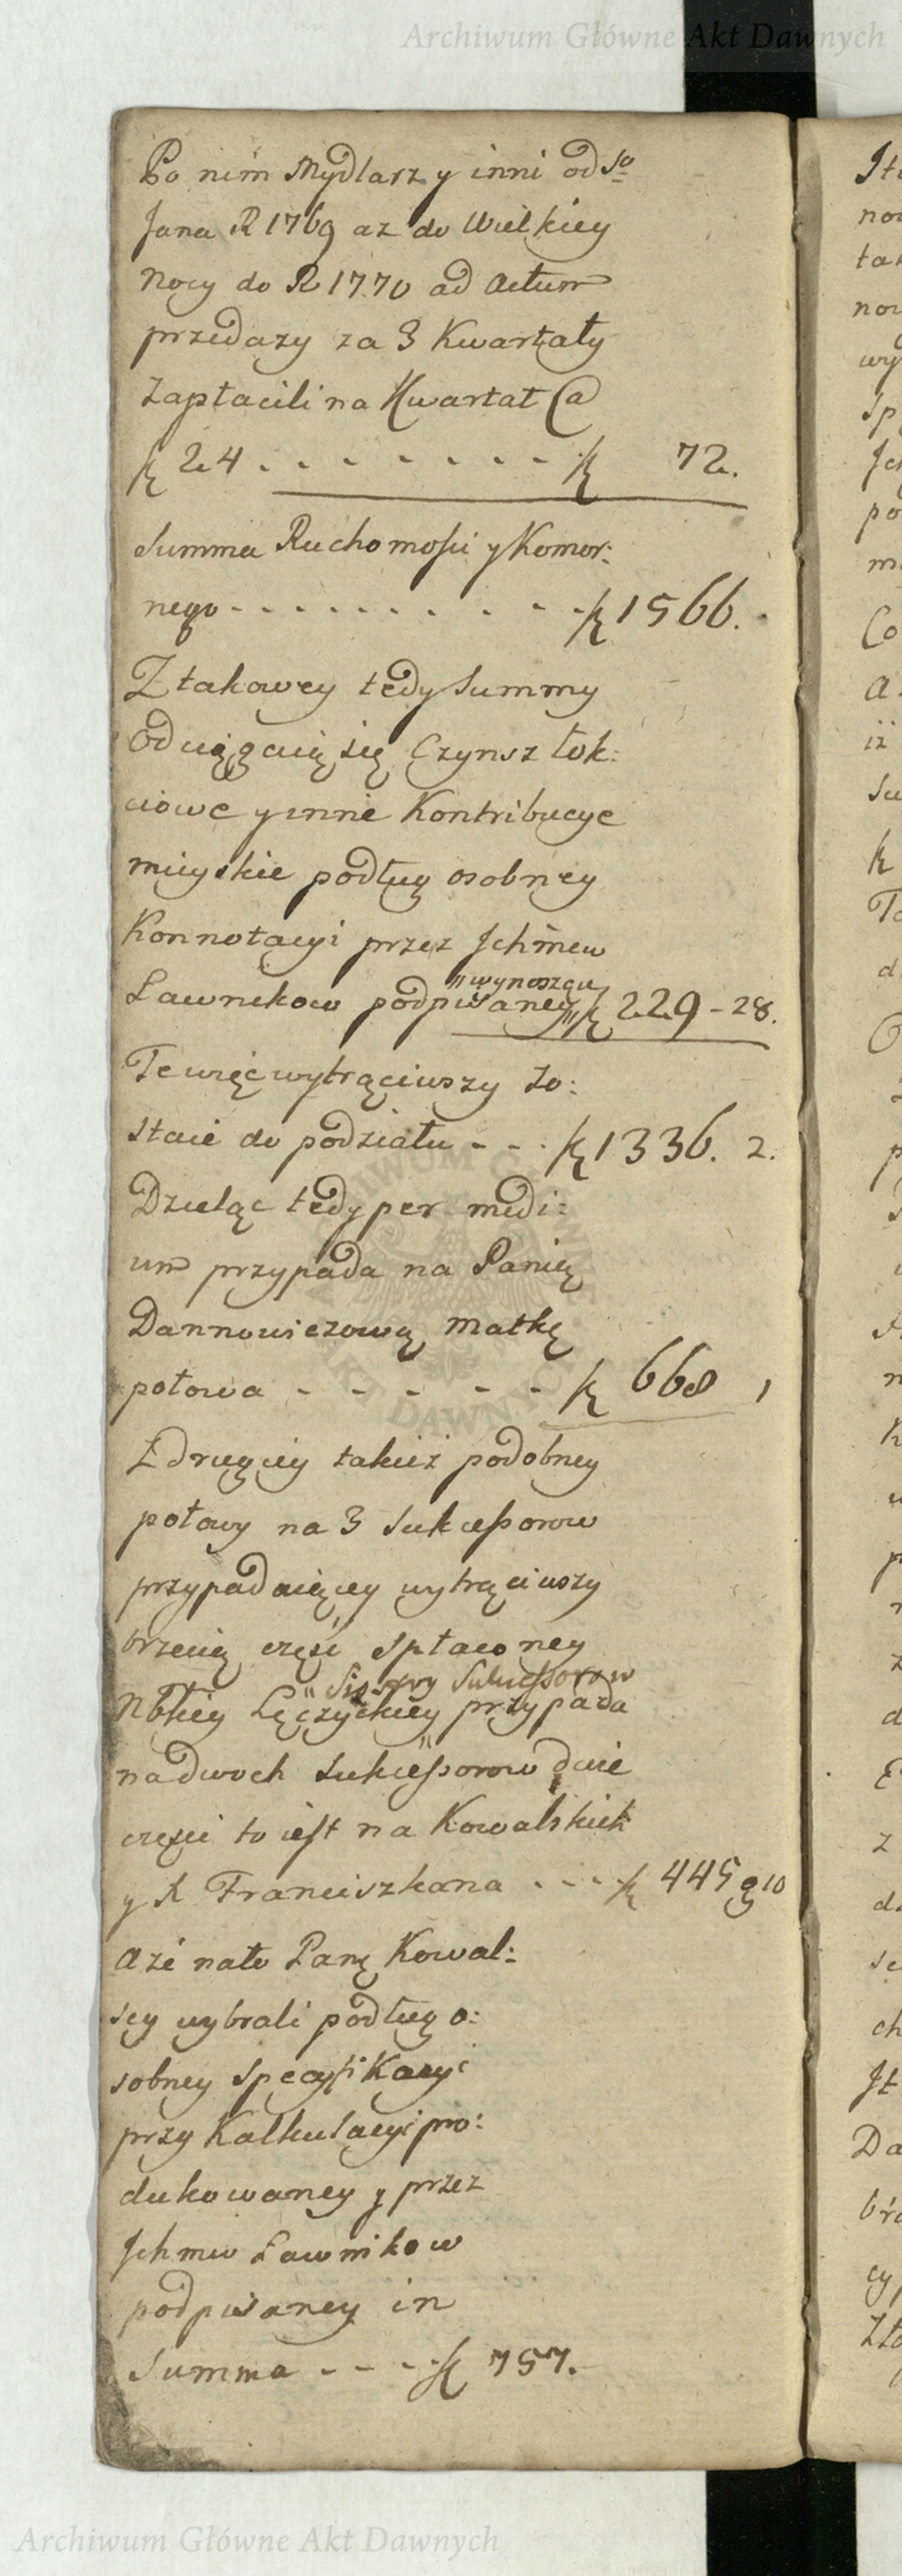 Archiwum Główne Akt Dawnych
Po nim Mydlarz y inni od So
Jana R 1769 az do Wielkiey
Nocy do R 1770 ad Actum
przedazy za 3 Kwartały
zapłacili na Kwartał @
zł 24 - - - - - - - - zł 72.
Summa Ruchomości y Komor:
nego - - - - - - - - - zł 1566.
Z takowey tedy Summy
Odciągaią się Czynsz łok:
ciowe y inne Kontribucye
mieyskie podług osobney
Konnotacyi przez Jchmcw
"wynoszący
Ławnikow podpisaney" zł 229 - 28.
Te więc wytrąciwszy zo:
staie do podziału - - - zł 1336. 2.
Dzieląc tedy per medi:
um przypada na Panią
Dannowiczową Matkę
połowa - - - - - - zł 668 1
Z drugiey takież podobney
połowy na 3 Sukcessorow
przypadaiącey wytrąciwszy
trzecią część spłaconey
Siostry Sukcessorow
Nbkiey Łęczyckiey przypada
na dwoch Sukcessorow dwie
części to iest na Kowalskich
y X Franciszkana - - - zł 445 g 10
A że na to Pany Kowal:
scy wybrali podług o:
sobney Specyfikacyi
przy Kalkulacyi pro:
dukowaney y przez
Jchmw Ławnikow
podpisaney in
Summa - - - - zł 757.
Archiwum Główne Akt Dawnych